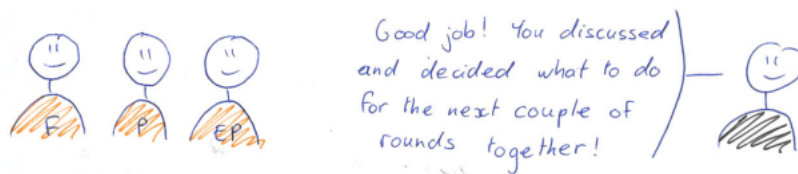 F P EP
Good job! You discussed
and decided what to do
for the next couple of
rounds together!